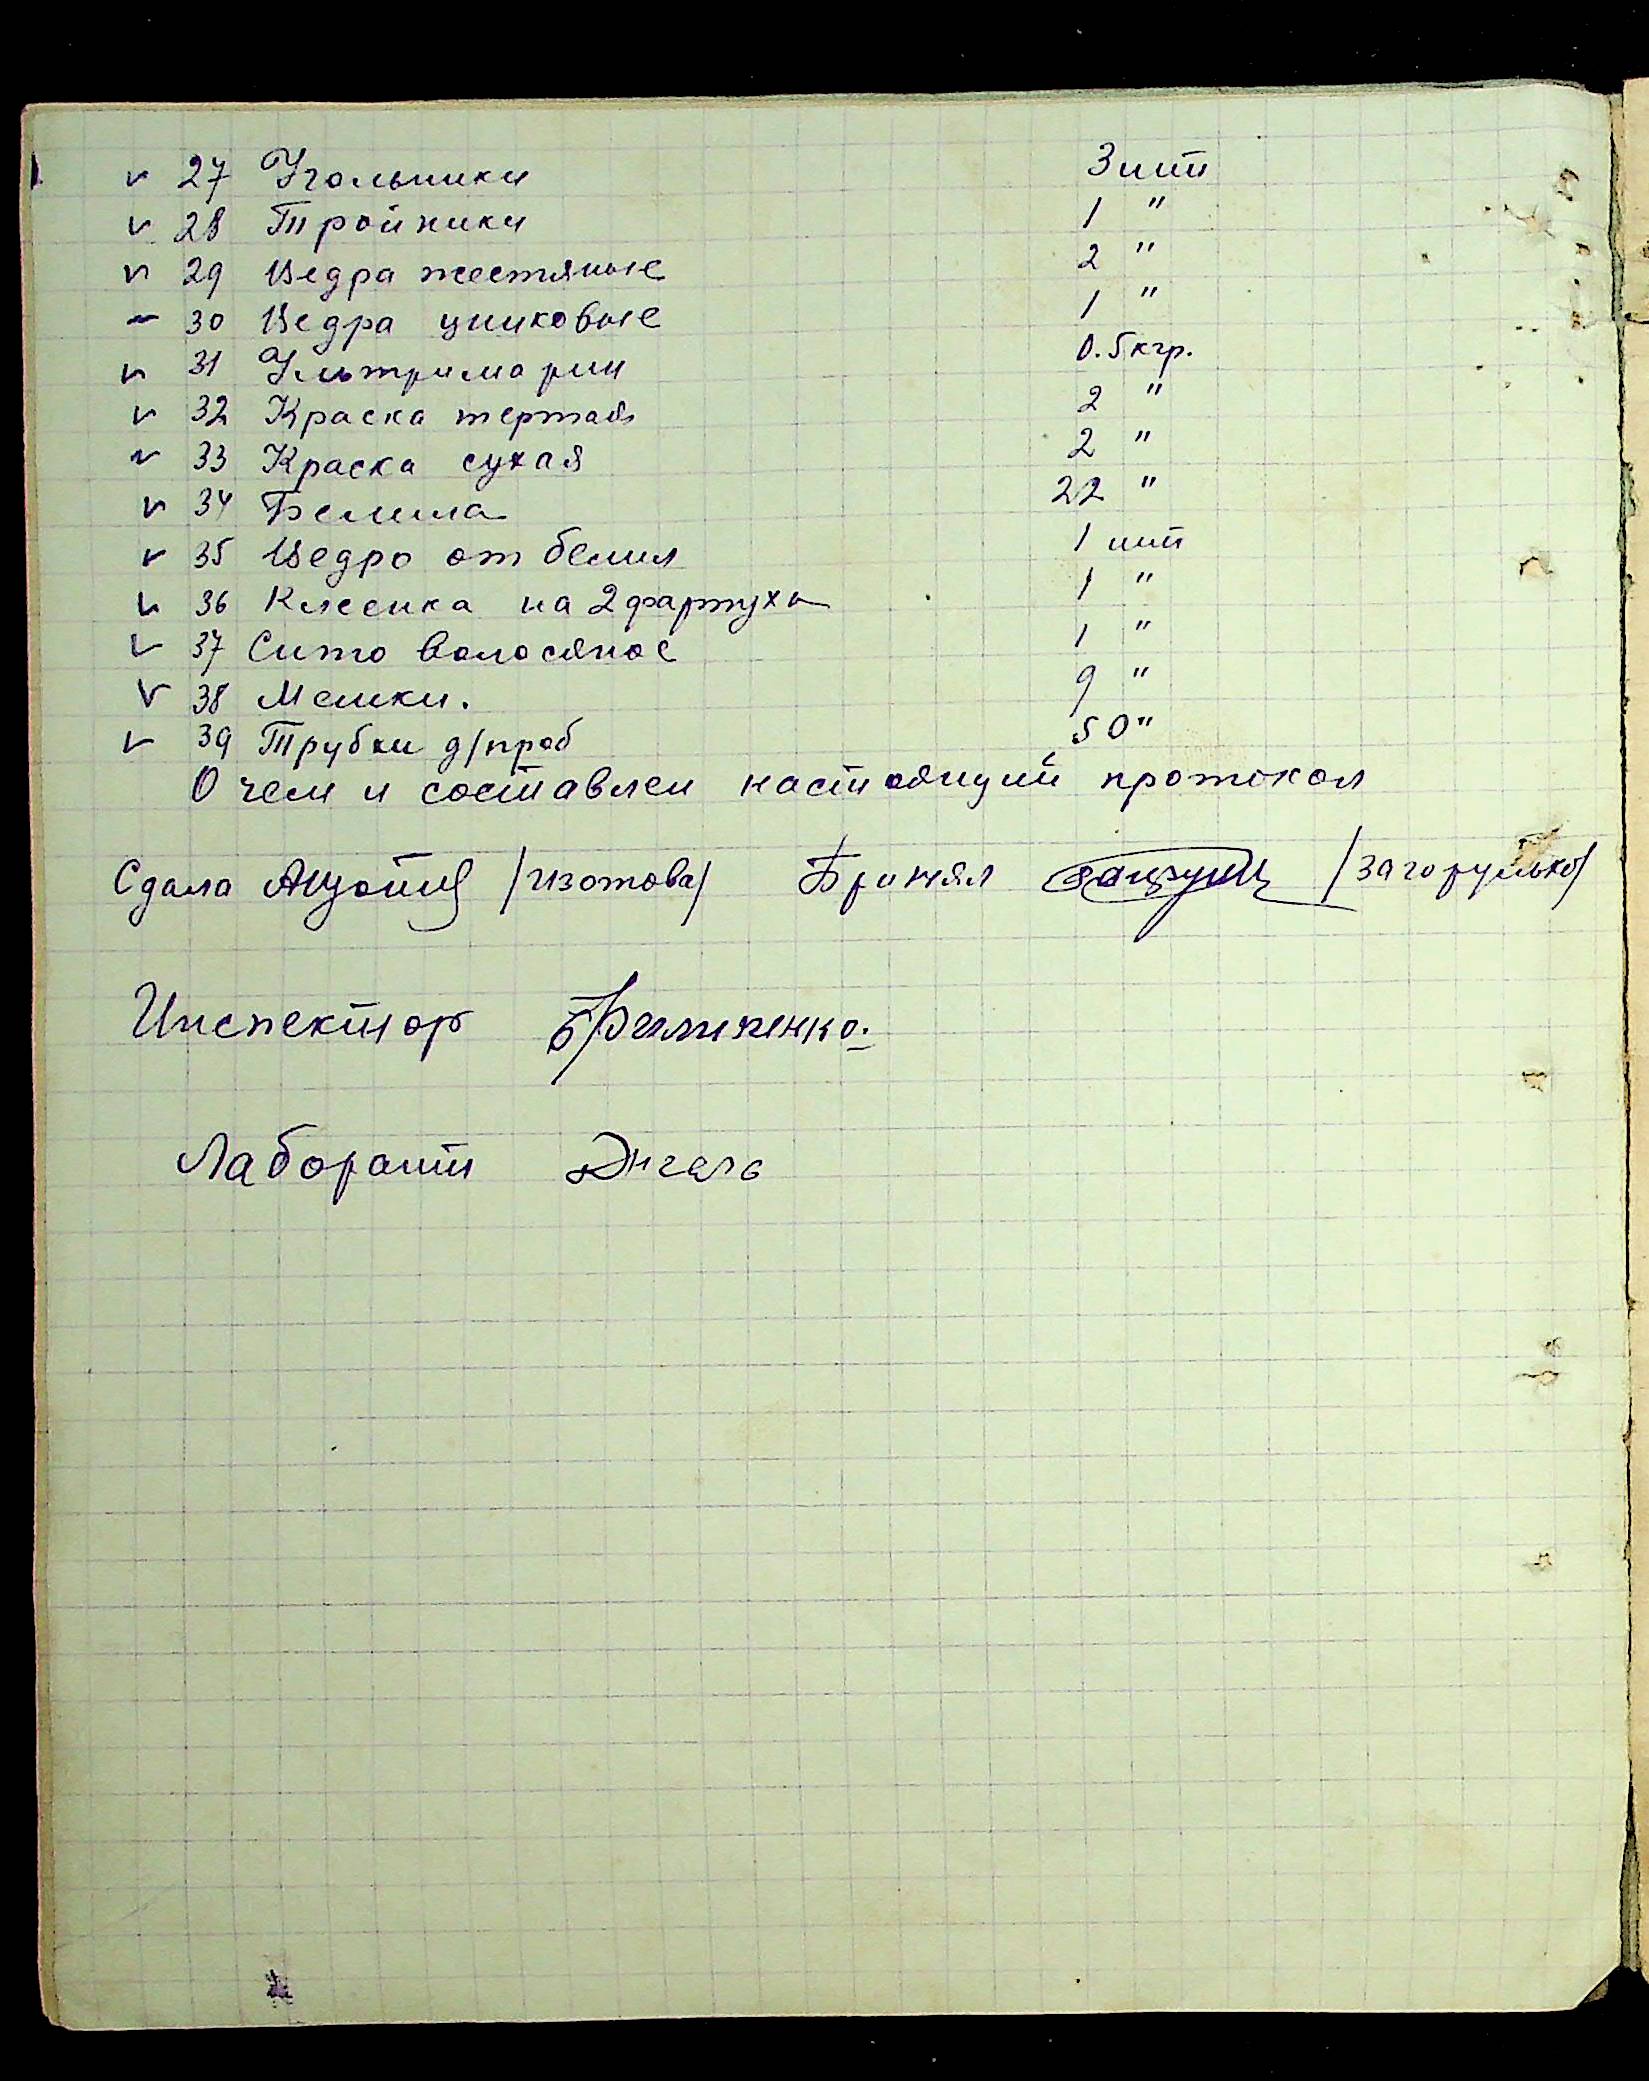 v 27 Угольники 3 шт
v 28 Тройники 1 "
v 29 Ведра жестяные 2 "
v 30 Ведра цинковые 1 "
v 31 Ультримарин 0.5 кгр.
v 32 Краска тертая 2 "
v 33 Краска сухая 2 "
v 34 Белила 22 "
v 35 Ведро от белил 1 шт
v 36 Клеенка на 2 фартука 1 "
v 37 Сито волосяное 1 "
v 38 Мешки. 9 "
v 39 Трубки д/проб 50 "
О чем и составлен настоящий протокол
Сдала /Изотова/ Принял /Загорулько/
Инспектор
Лаборант